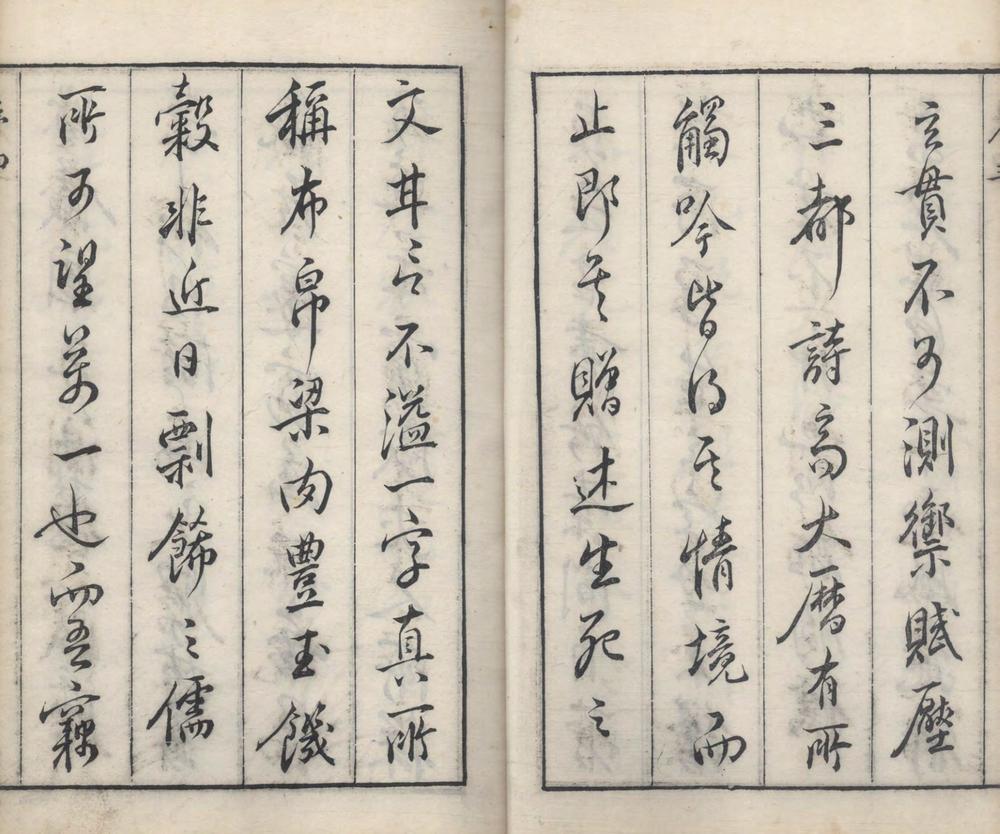 玄貫不可測禦賦壓
三都詩高大曆有所
觸吟皆得其情境而
止即其贈述生死之
文其言不溢一字真所
稱布帛梁肉豐玉饑
穀非近日剽飾之儒
所可望萬一也而吾竊